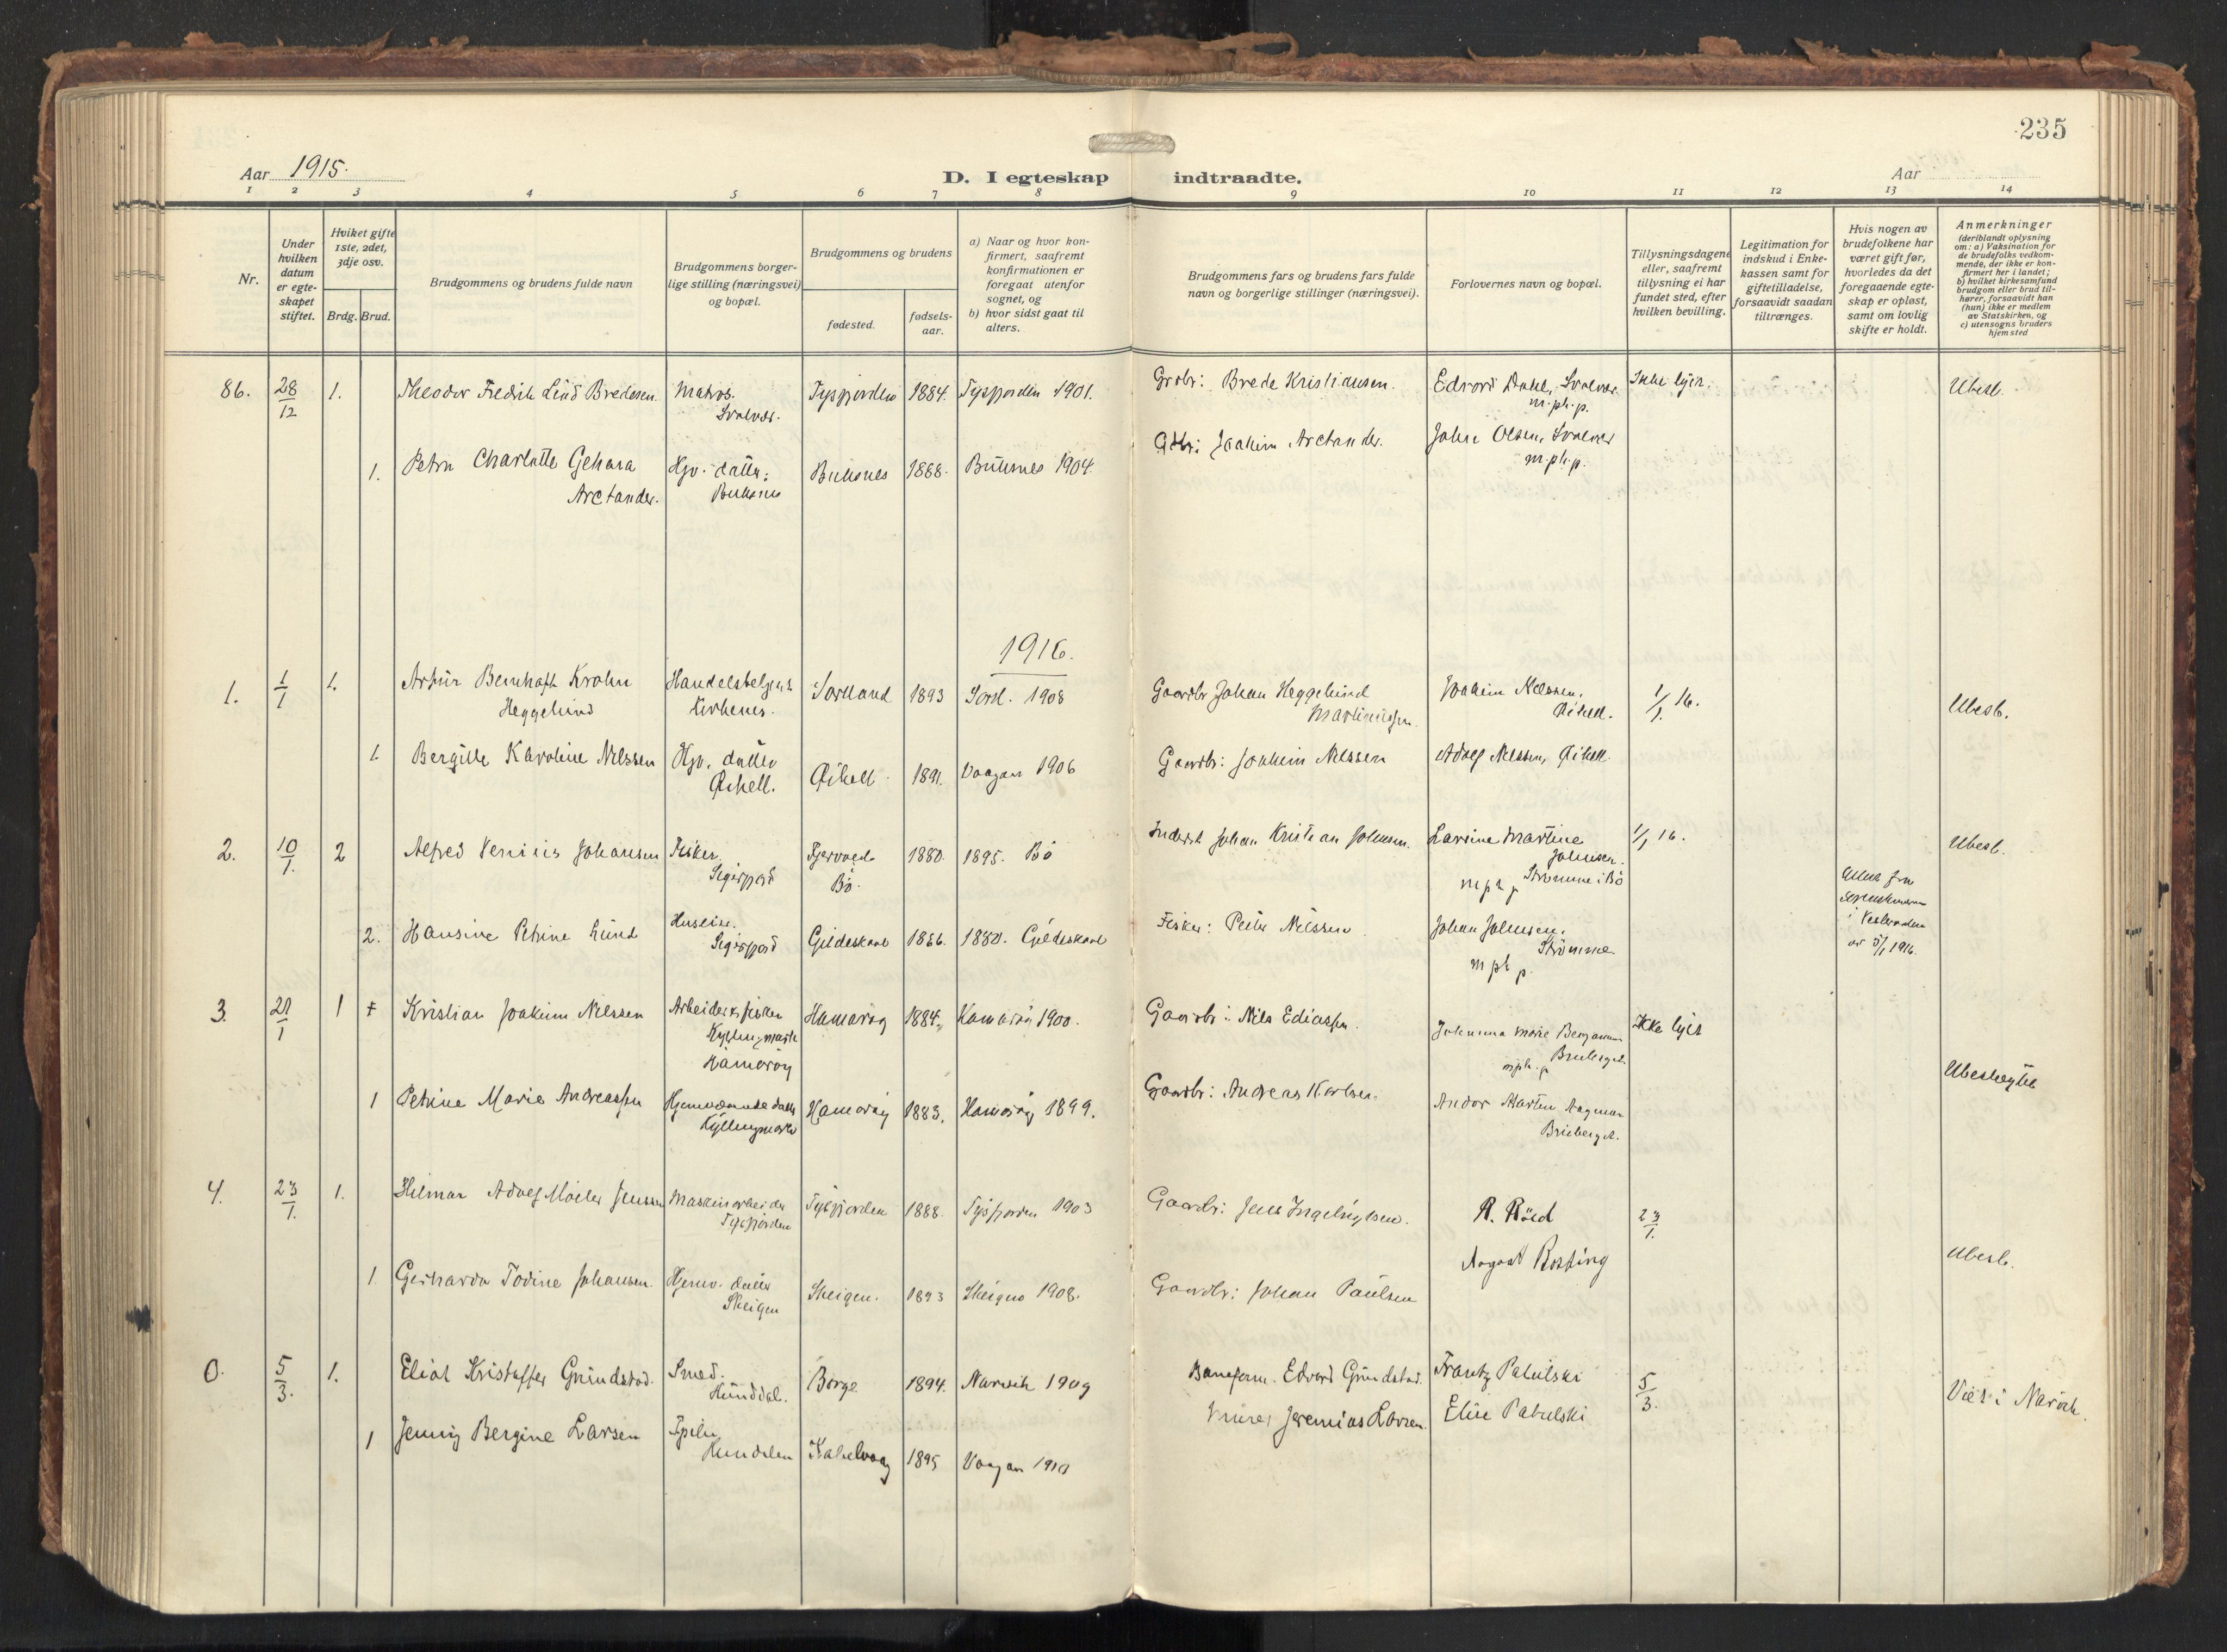 235
Aar 1915.
D. I egteskap indtraadte.
Aar
1 2 3 4 5 6 7 8 9 10 11 12 13 14
Nr.
Under hvilken datum er egteskapet stiftet.
Hviket gifte 1ste, 2det, 3dje osv.
Brdg. Brud.
Brudgommens og brudens fulde navn
Brudgommens borgerlige stilling (næringsvei) og bopæl.
Brudgommens og brudens
fødested.
fødselsaar.
a) Naar og hvor konfirmert, saafremt konfirmationen er foregaat utenfor sognet, og
b) hvor sidst gaat til alters.
Brudgommens fars og brudens fars fulde navn og borgerlige stillinger (næringsvei).
Forlovernes navn og bopæl.
Tillysningsdagene eller, saafremt tillysning ei har fundet sted, efter hvilken bevilling.
Legitimation for indskud i Enkekassen samt for giftetilladelse, forsaavidt saadan tiltrænges.
Hvis nogen av brudefolkene har været gift før, hvorledes da det foregaaende egteskap er opløst, samt om lovlig skifte er holdt.
Anmerkninger
(deriblandt oplysning om: a) Vaksination for de brudefolks vedkommende, der ikke er konfirmert her i landet; b) hvilket kirkesamfund brudgom eller brud tilhører, forsaavidt han (hun) ikke er medlem av Statskirken, og c) utensogns bruders hjemsted
86. 28/12 1. Theodor Fredrik Lind Bredesen. Matros. Svolvær. Tysfjorden 1884. Tysfjorden 1901. Grdbr: Brede Kristiansen. Edvard Dahl, Svolvær. m.ph.p. Ikke lyst. Ubesl.
1. Petra Charlotte Gehara Arctander. Hjv. datter. Buksnes Buksnes 1888. Buksnes 1904. Gdbr: Joakim Arctander. John Olsen, Svolvær m.ph.p.
1916.
1. 1/1 1. Artur Bernhoft Krohn Heggelund Handelsbetjent Kirkenes. Sortland 1893 Sortl. 1908 Gaardbr Johan Heggelund Martinussen. Joakim Nilssen, 1/1 16. Ubesl.
1. Bergitte Karoline Nilssen Hjv. datter 1891. Vaagan 1906 Gaardbr: Joakim Nilssen Adolf Nilssen,
2. 10/1. 2 Alfred Johansen Fisker. Sigerfjord Bö. 1880. 1895. Bö Inderst Johan Kristian Johnsen. Larsine Martine Johnsen. Strömme i Bö m ph p 1/1 16. Ubesl.
Attest fra i Vesteraalen av 5/1 1916.
2. Hansine Petrine Lund Sigerfjord Gildeskaal 1866. 1880. Gildeskaal Fisker: Peder Nilssen Johan Johnsen. Strömme m ph p.
3. 21/1 1 Kristian Joakim Nilssen Arbeider & fisker Kyllingmark Hamaröy Hamaröy 1884. Hamaröy 1900. Gaardbr: Nils Ediassen. Johanna Marie mph. p. Ikke lyst
1 Petrine Marie Andreassen Hjemværende datter Kyllingmark Hamaröy 1883. Hamaröy 1899. Gaardbr: Andreas Karlsen. Andor Martin Ubeslegtet
4. 23/1. 1. Hilmar Adolf Möller Jenssen Maskinarbeider Tysfjorden Tysfjorden 1888. Tysfjorden 1903 Gaardbr: Jens Ingebrigtsen. R. Röed 23/1.
1 Gerharda Todine Johansen. Hjemv. datter Steigen Steigen. 1893 Steigen 1908. Gaardbr: Johan Paulsen Aagot Rosting Ubesl.
0. 5/3. 1. Eliot Kristoffer Grundstad. Smed. Hunddal. Borge 1894. Narvik 1909 Baneform. Edvard Grundstad. Frantz Pabulski 5/3. Viet i Narvik.
1 Jenny Bergine Larsen Hundalen Kabelvaag 1895 Vaagan 1910 Murer Jeremias Larsen. Elise Pabulski